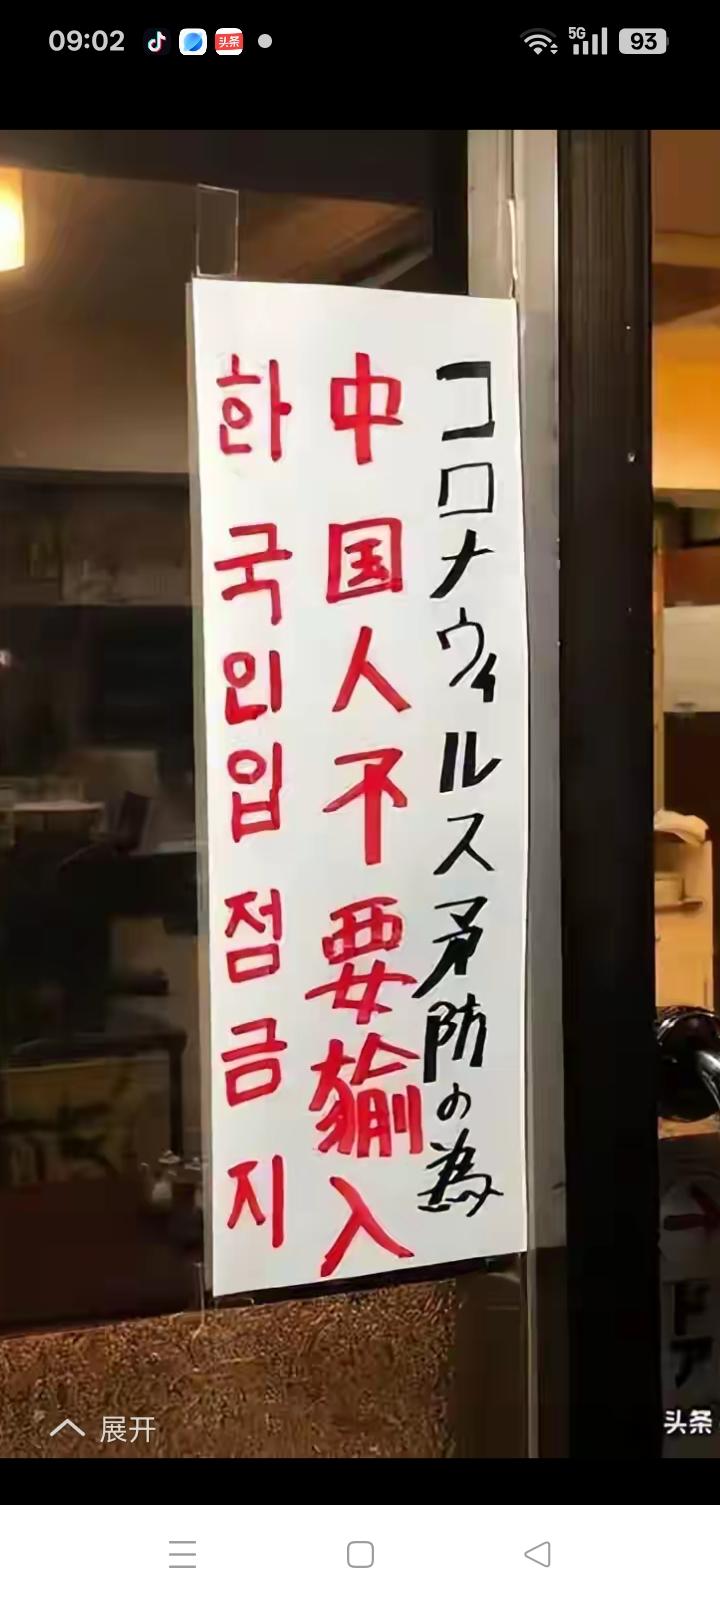 09:02
头条
5G
93
コロナウィルス矛防の為
中国人不要输入
한국인입점금지
ドア
头条
展开